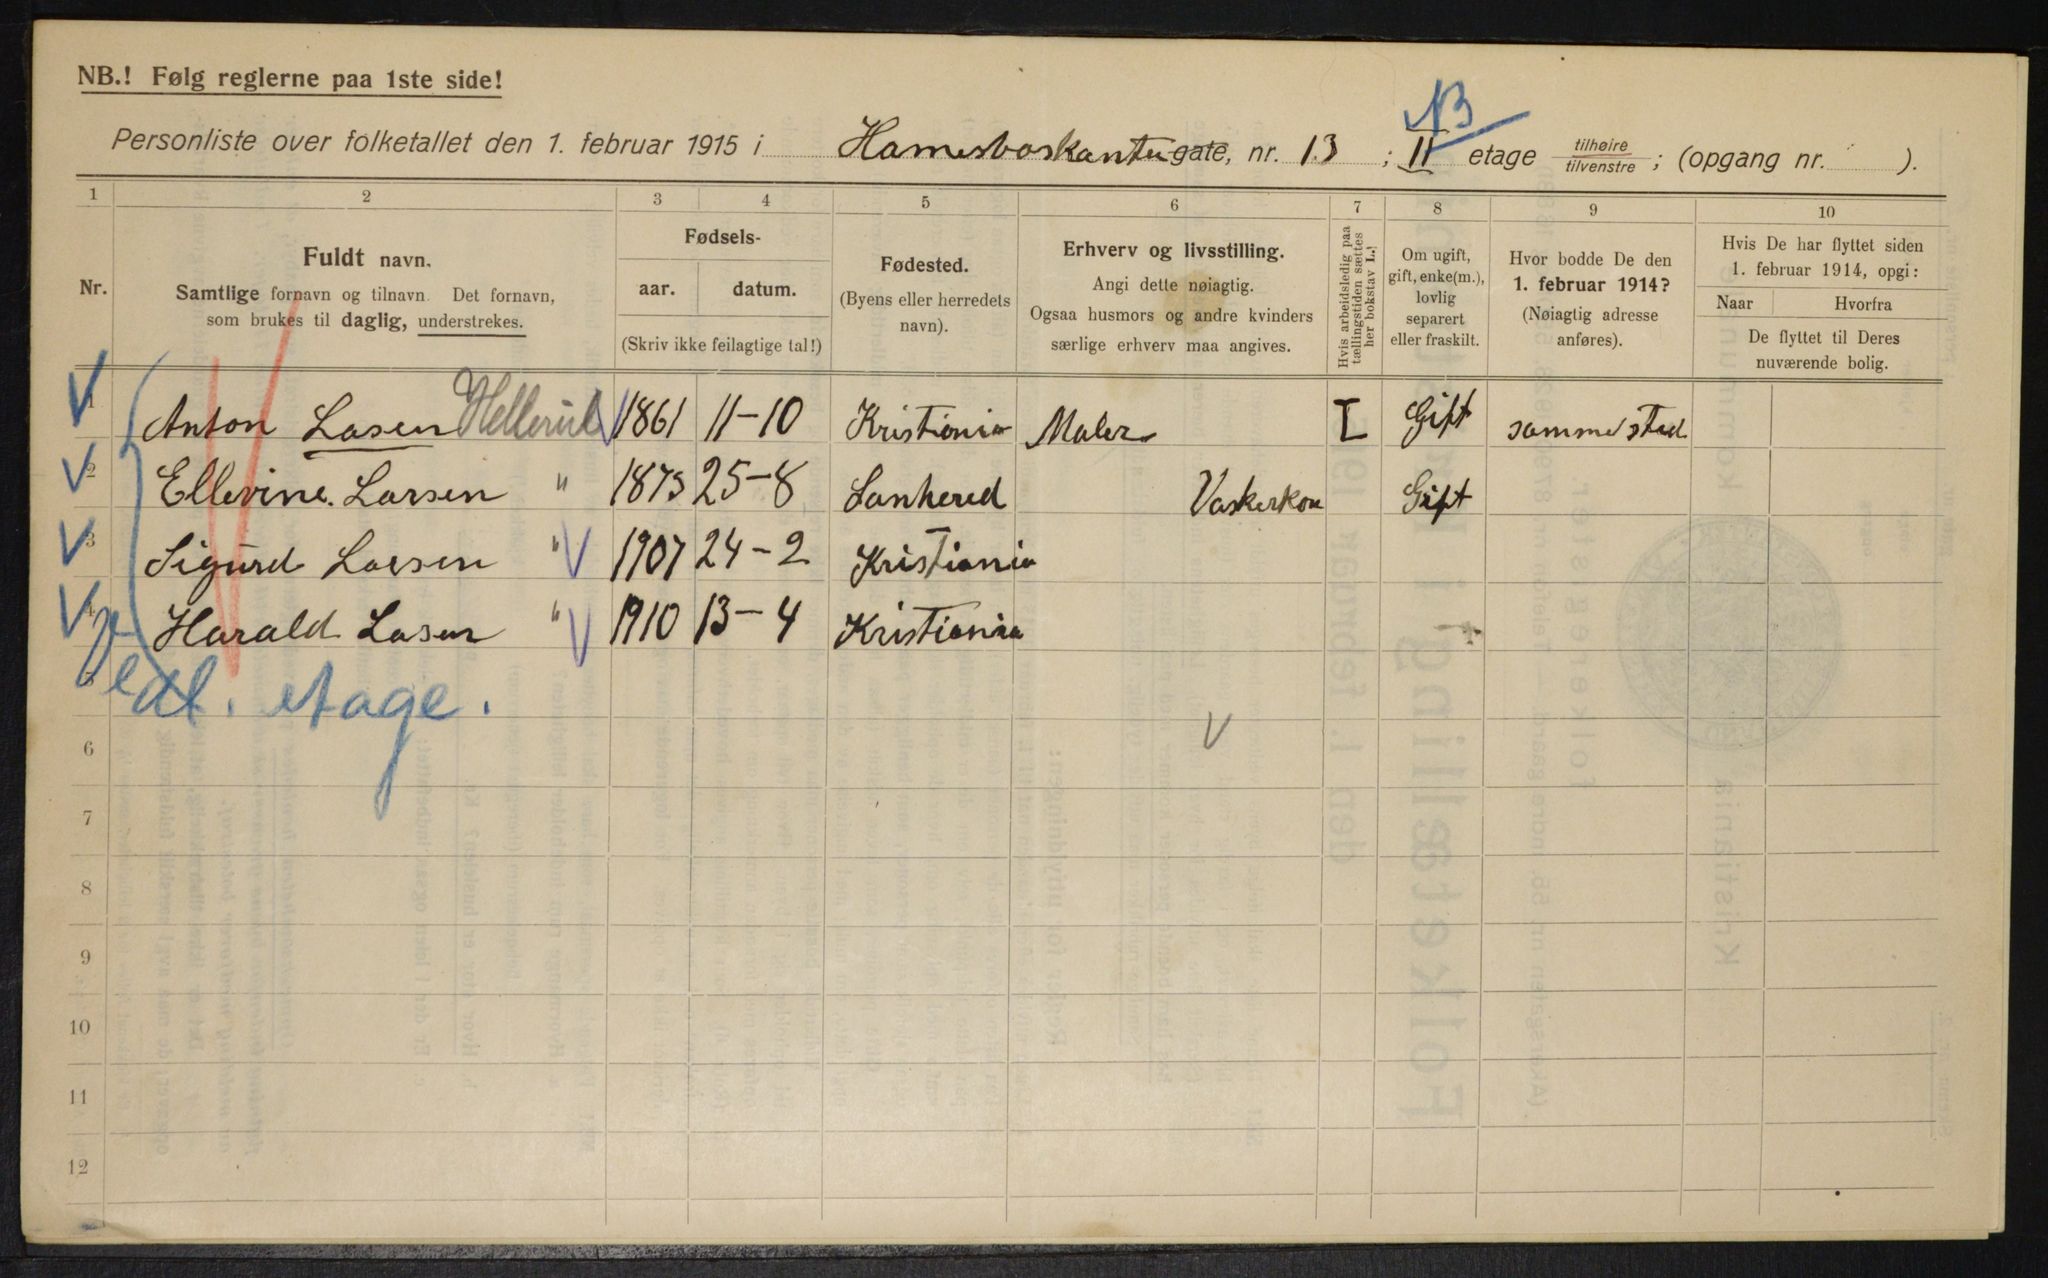 NB.! Følg reglerne paa 1ste side!
Personliste over folketallet den 1. februar 1915 i Hamesboskanten gate, nr. 13 ; II etage tilhøire tilvenstre ; (opgang nr. ).
NB
1 2 3 4 5 6 7 8 9 10
Nr.
Fuldt navn.
Samtlige fornavn og tilnavn. Det fornavn,
som brukes til daglig, understrekes.
Fødsels-
aar. datum.
(Skriv ikke feilagtige tal!)
Fødested.
(Byens eller herredets
navn).
Erhverv og livsstilling.
Angi dette nøiagtig.
Ogsaa husmors og andre kvinders
særlige erhverv maa angives.
Hvis arbeidsledig paa
tællingstiden sættes
her bokstav L.!
Om ugift,
gift, enke(m.),
lovlig
separert
eller fraskilt.
Hvor bodde De den
1. februar 1914?
(Nøiagtig adresse
anføres).
Hvis De har flyttet siden
1. februar 1914, opgi:
Naar Hvorfra
De flyttet til Deres
nuværende bolig.
1 Anton Lasen Hellerud 1861 11-10 Kristiania Maler L Gift samme sted
2 Ellevine Larsen " 1875 25-8 Sanherred Vaskerkon Gift
3 Sigurd Larsen " 1907 24-2 Kristiania
4 Harald Lasen " 1910 13-4 Kristiania
5
etage.
6
7
8
9
10
11
12